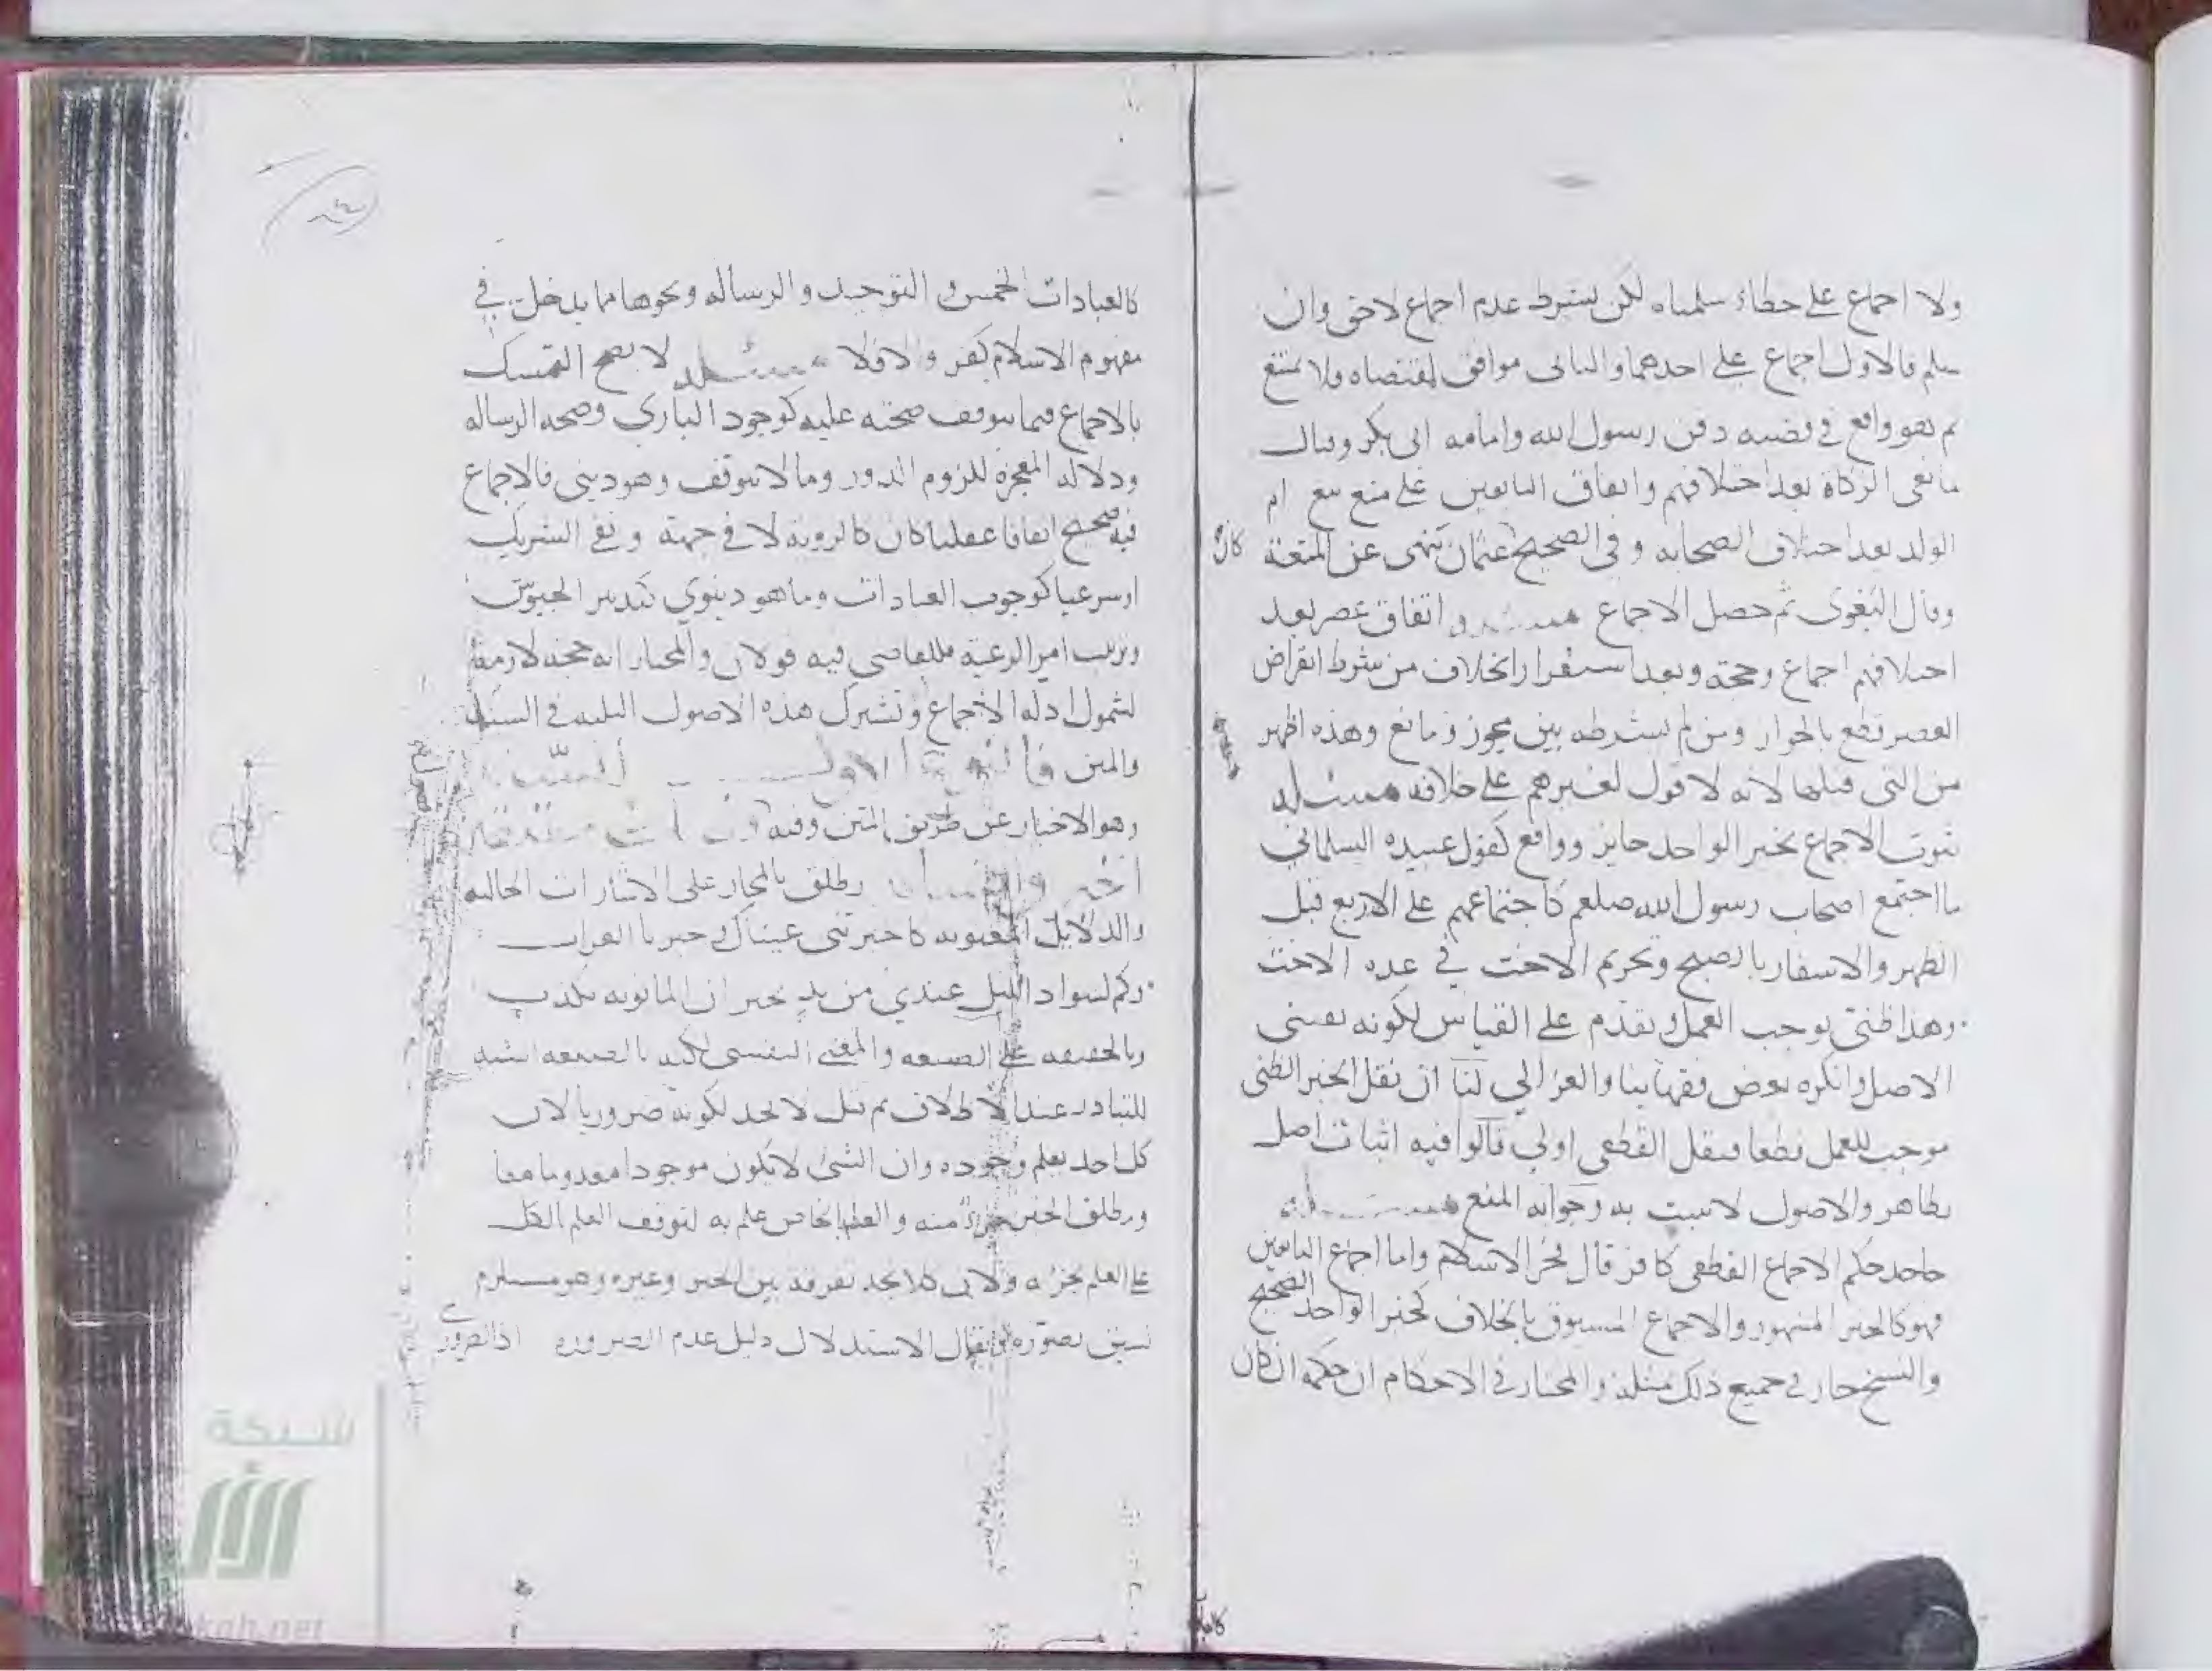 ولا اجماع على خطاء سلمناه لكن بشرط عدم اجماع لاحق وان
سلم فالاول اجماع على احدهما والثانى موافق لمقتضاه فلا يمتنع
ثم هو واقع في قضيه دفن رسول الله وامامه ابى بكر وقتال
مانعى الزكاة بعد اختلافهم واتفاق التابعين على منع بيع ام
الولد بعد اختلاف الصحابه وفى الصحيح عثمان ينهى عن المتعة
كان
وقال البغوى ثم حصل الاجماع واتفاق عصر بعد
اختلافهم اجماع وحجة وبعد استقرار الخلاف من شرط انقراض
العصر قطع بالجواز ومن لم يشرطه بين مجوز ومانع وهذه اظهر
من التى قبلها لانه لا قول لغيرهم على خلافه مسئله
ثبوت الاجماع بخبر الواحد جايز وواقع كقول عبيده السلمانى
ما اجتمع اصحاب رسول الله صلعم كاجتماعهم على الاربع قبل
الظهر والاسفار بالصبح وتحريم الاخت في عده الاخت
وهذا ظنى يوجب العمل ويقدم على القياس لكونه
الاصل وانكره بعض فقهاينا والغزالي لنا ان نقل الخبر الظنى
موجب للعمل قطعا فنقل القطعى اولى قالوا فيه اثبات اصل
بظاهر والاصول لا تثبت به وجوابه المنع مسئله
جاحد حكم الاجماع القطعى كافر قال فخر الاسلام واما اجماع التابعين
فهو كالخبر المشهور والاجماع المسبوق بالخلاف كخبر الواحد الصحيح
والنسخ جاز في جميع ذلك بمثله والمختار في الاحكام ان حكمه ان كان
كالعبادات الخمس والتوحيد والرساله ونحوها مما يدخل في
مفهوم الاسلام كفر والا فلا مسئله لا يصح التمسك
بالاجماع فيما يتوقف صحته عليه كوجود البارى وصحه الرساله
ودلاله المعجزة للزوم الدور وما لا يتوقف وهو دينى فالاجماع
فيه صحيح اتفاقا عقليا كان كالرويه لا في جهة ونفى الشريك
او شرعيا كوجوب العبادات وما هو دنيوي كتدبير الجيوش
وترتيب امر الرعية فللقاضى فيه قولان والمختار انه حجة لازمة
لشمول ادله الاجماع وتشترك هذه الاصول الثلثه في السند
والمتن الاول السند
وهو الاخبار عن طريق المتن وفيه
يطلق بالمجاز على الاشارات الحاليه
والدلايل المعنويه كاخبرتنى عيناك وخبرنا الغراب
وكم لسواد الليل عندي من يد تخبر ان المانويه تكذب
وبالحقيقه على الصيغه والمعنى النفسى لكنه بالصيغه اشبه
للتبادر عند الاطلاق ثم قيل لا يحد لكونه ضروريا لان
كل احد يعلم وجوده وان الشئ لا يكون موجودا معدوما معا
ومطلق الخبر جزء منه والعلم بالخاص علم به لتوقف العلم الكل
على العلم بجزئه ولان كلا يجد تفرقه بين الخبر وغيره وهو مستلزم
لسبق تصوره لا يقال الاستدلال دليل عدم الضروره اذ الضرورى
شبكة
kah.net